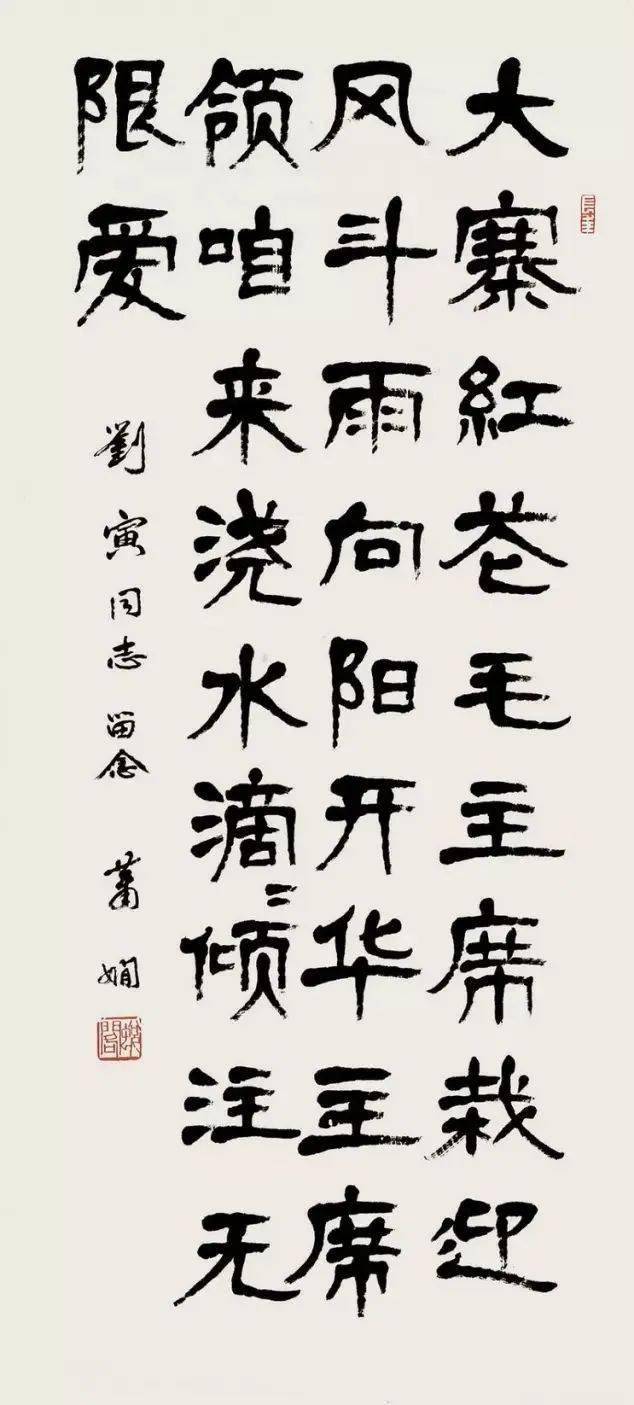 大寨紅花毛主席栽迎
风斗雨向阳开华主席
领咱来浇水滴〻倾注无
限爱
劉寅同志留念 萧娴